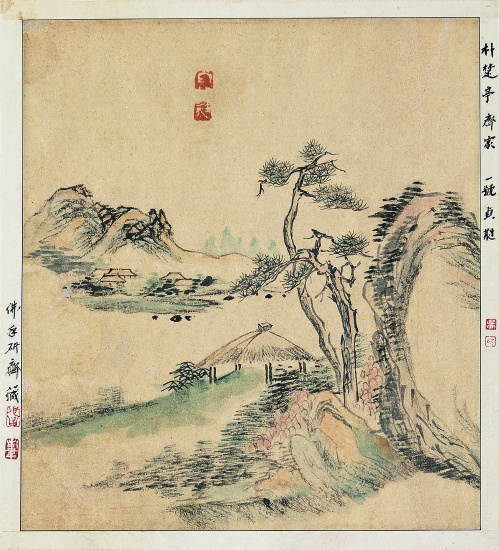 朴楚亭齊家 一號貞蕤
貞蕤
佛手研齋藏